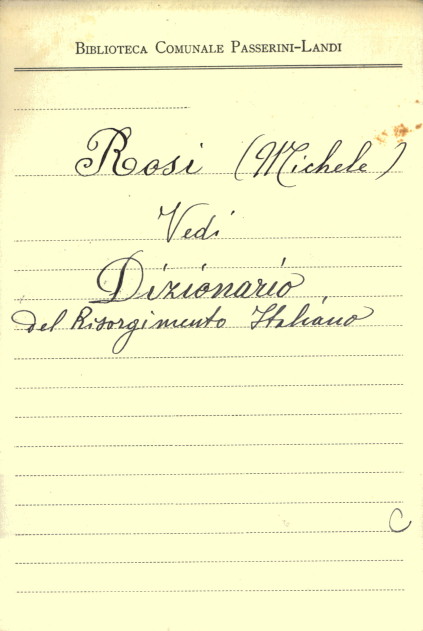 Biblioteca Comunale Passerini-Landi
Rosi (Michele)
Vedi
Dizionario
del Risorgimento Italiano
C